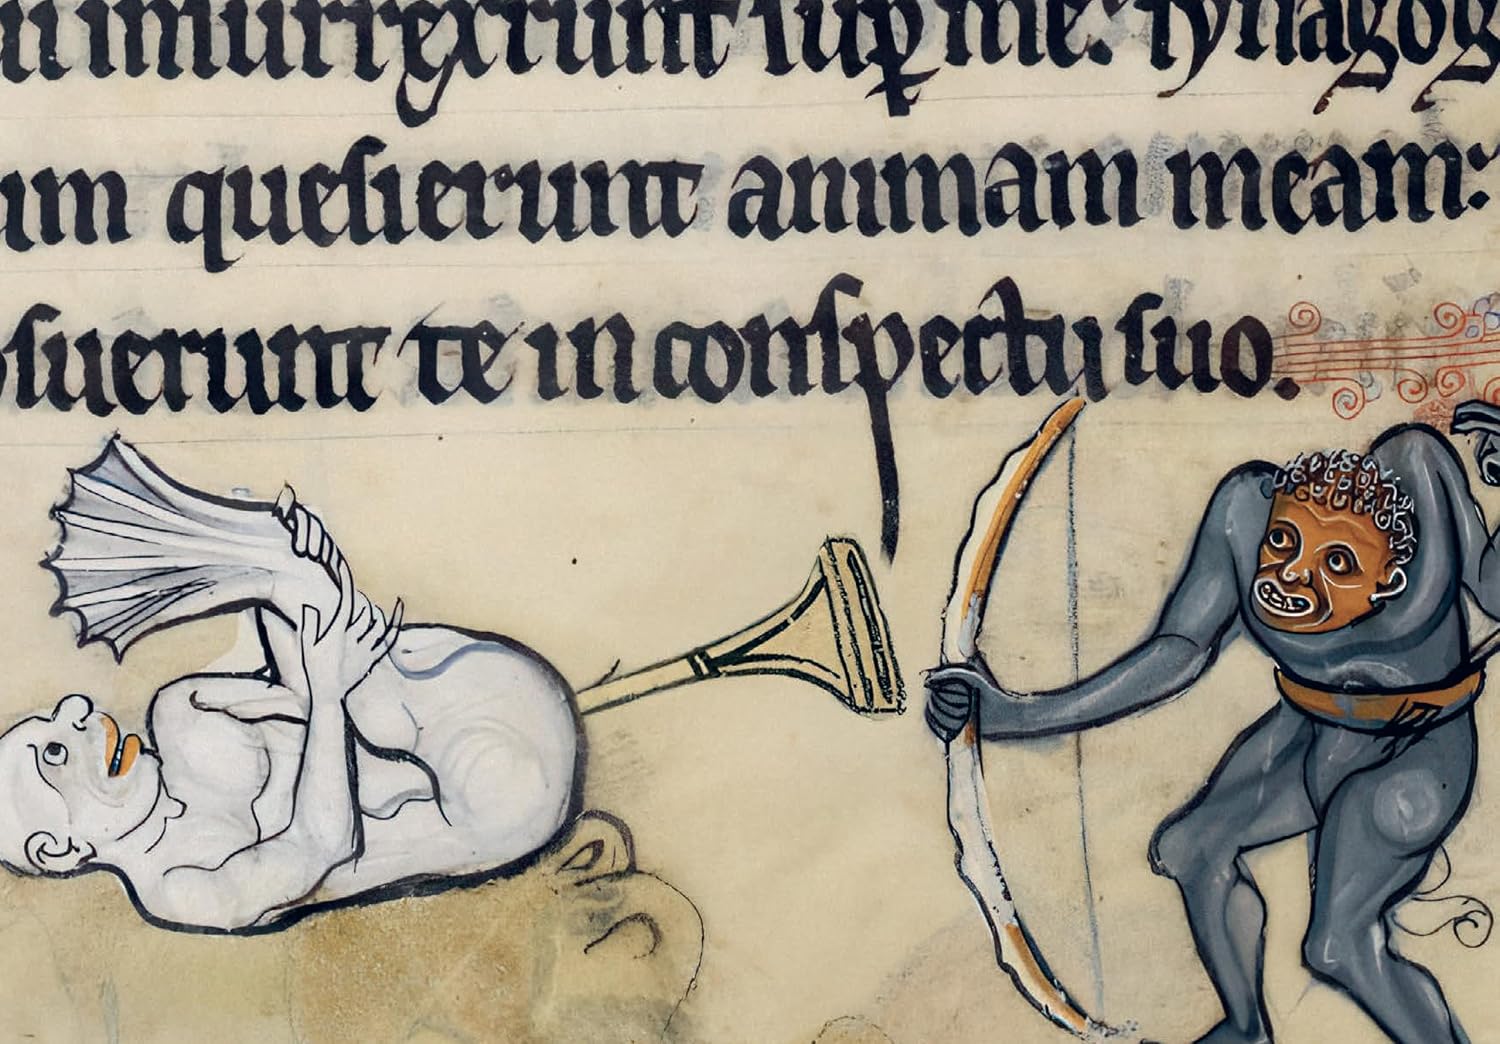 insurrexerunt suꝑ me: synagog
um quesierunt animam meam:
osuerunt te in conspectu suo.